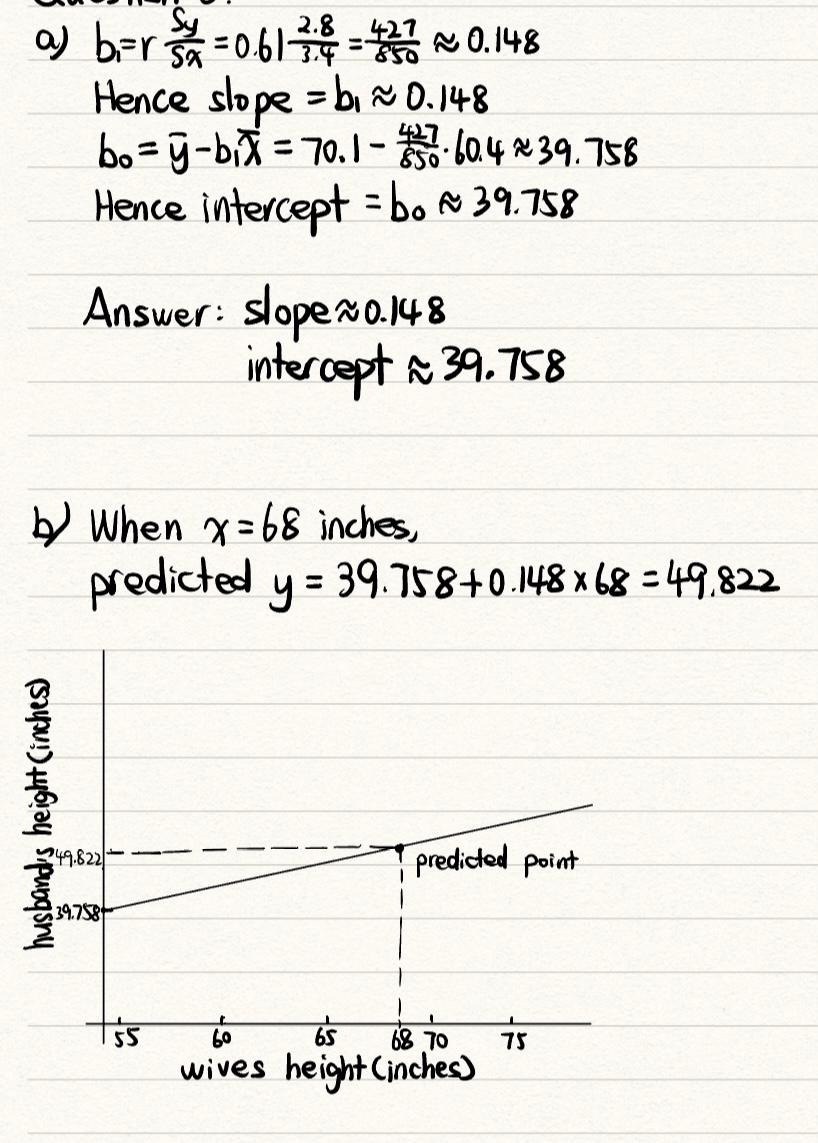 Question
a) b₁=r Sy/Sx = 0.61 2.8/3.4 = 427/850 ≈ 0.148
Hence slope = b₁ ≈ 0.148
b₀ = ȳ - b₁x̄ = 70.1 - 427/850 · 60.4 ≈ 39.758
Hence intercept = b₀ ≈ 39.758
Answer: slope ≈ 0.148
intercept ≈ 39.758
b) When x = 68 inches,
predicted y = 39.758 + 0.148 × 68 = 49.822
husband's height (inches)
49.822
predicted point
39.758
55 60 65 68 70 75
wives height (inches)